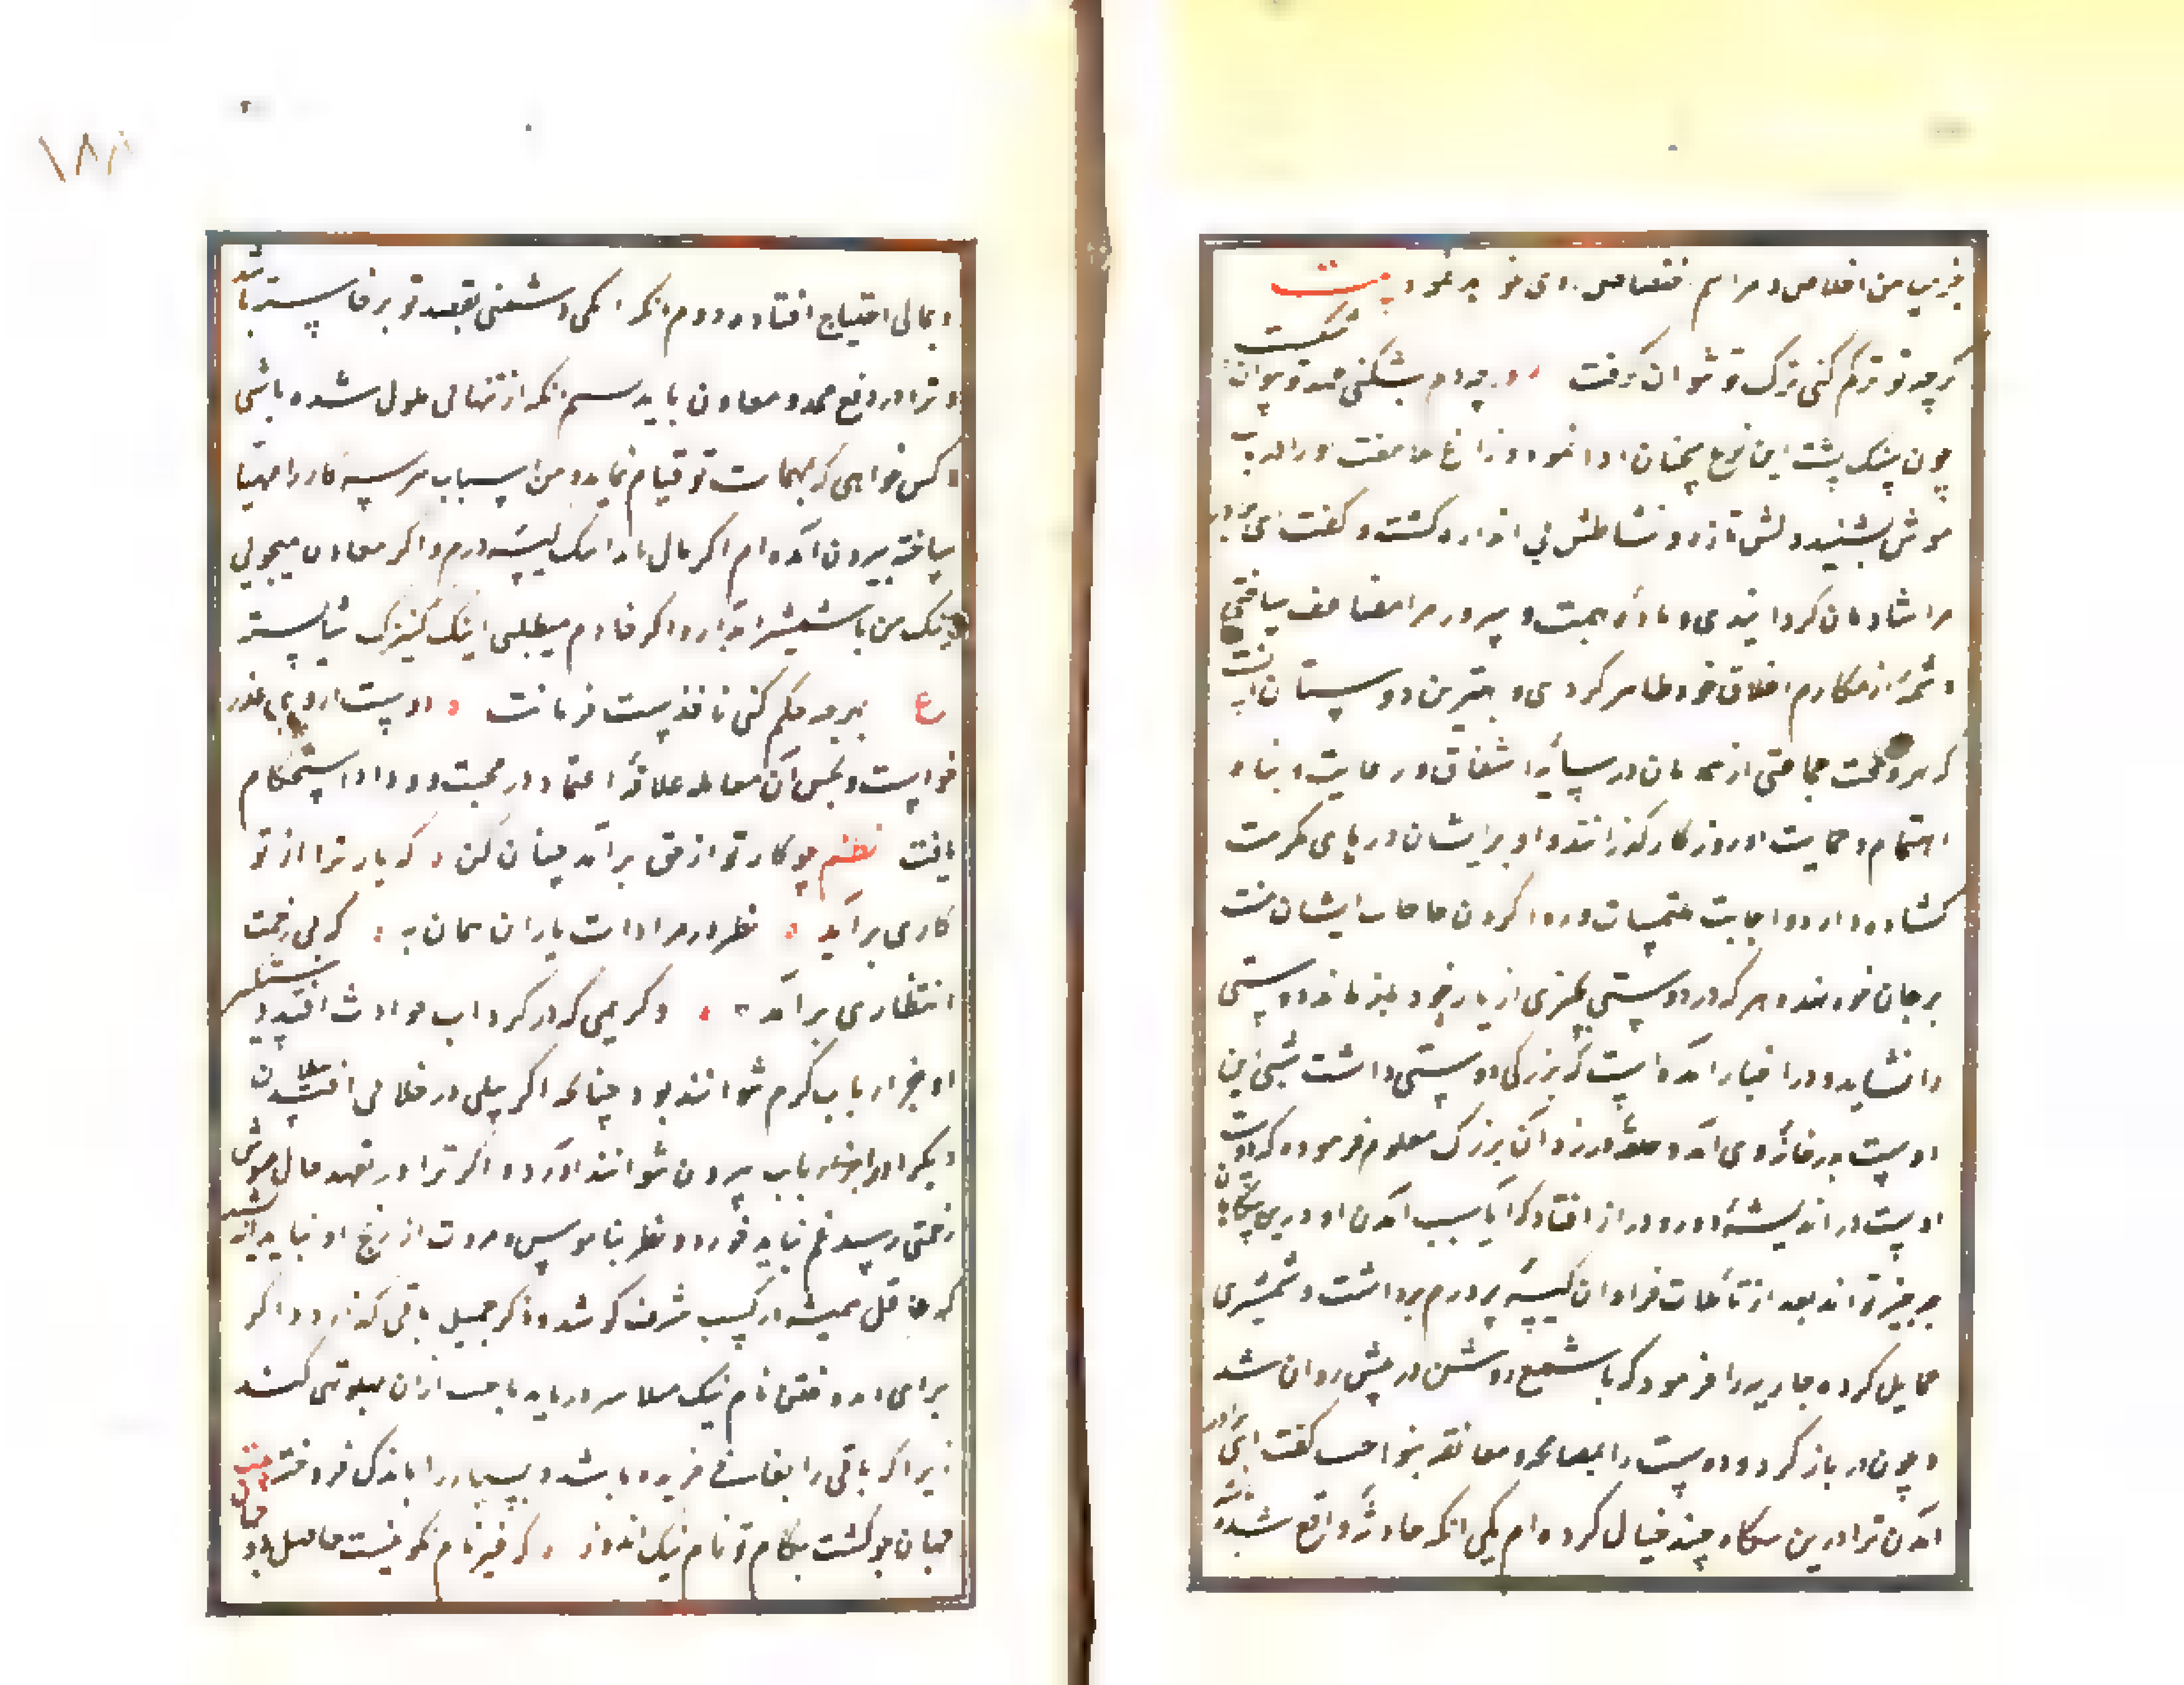 بغیر من اخلاص و مراسم اختصاص ای خود بد نمود بیت
گرچه تو ترکم کنی ترک تو نتوان گرفت ورچه دلم بشکنی عهد تو نتوان شکست
چون سنگ پشت این نوع سخنان ادا نمود و زاغ ملاطفت او را در باب
موش بشنید دلش تازه و نشاطش بی اندازه گشت و گفت ای برادر
مرا شادمان گردانیدی و ماده بهجت و سرور مرا مضاعف ساختی
و شمهٔ از مکارم اخلاق خود ظاهر کردی و بهترین دوستان آنست
که همه وقت جماعتی از محبان در سایهٔ اشفاق و رعایت و پناه
اهتمام و حمایت او روزگار گذرانند و او بر ایشان در پای مکرمت
گشاده دارد و اجابت ملتمسات و روا کردن حاجات ایشان منت
بر جان خود نهد و هر که در دوستی بچیزی از یار خود باز ماند دوستی
را نشاید و در اخبار آمده است که بزرگی دوستی داشت شبی این
دوست بدر خانهٔ وی آمد و حلقه در زد آن بزرگ معلوم فرمود که اوست
دوست در اندیشهٔ دور و دراز افتاد که آیا سبب آمدن او درین بیگاهان
چه چیز تواند بعد از تأملات فراوان کیسهٔ پر درم برداشت و شمشیری
حمایل کرده جاریه را فرمود که با شمع روشن در پیش روان شد
و چون در باز کرد و دوست را بمصافحه و معانقه بنواخت گفت ای برادر
آمدن ترا درین بیگاه چند خیال کرده ام یکی آنکه حادثهٔ واقع شده باشد
و بمالی احتیاج افتاده و دوم آنکه دشمنی بقصد تو برخاسته باشد
و ترا در دفع ممد و معاون باید سیم آنکه از تنهائی ملول شده باشی
و کس خواهی که بمهمات تو قیام نماید و من اسباب هر سه کار را مهیا
ساخته بیرون آمده ام اگر مال باید اینک کیسهٔ درم و اگر معاون میجوئی
اینک من با شمشیر آبدار و اگر خادم میطلبی اینک کنیزک شایسته
ع بهرچه حکم کنی نافذست فرمانت دوست از وی عذر
خواست و بحسن آن معامله علاقهٔ اعتماد در محبت و وداد استحکام
یافت نظم چو کار تو از حق برآمد چنان کن که یار ترا از تو
کاری برآید نظر در مرادات یاران همان به که بی زحمت
انتظاری برآید و کریمی که در گرداب حوادث افتد دستگیر
او بجز ارباب کرم نتوانند بود چنانچه اگر پیلی در خلابی افتد پیلان
دیگر او را بیرون توانند آورد و اگر ترا در تعهد حال موش
زحمتی رسد غم نباید خورد و نظر بناموس و مروت از رنج او نباید اندیشید
که عاقل همیشه در کسب شرف کوشد و ذکر جمیل باقی گذارد و اگر
برای اندوختن نام نیک مثلا سر در باید باخت از آن پهلو تهی نکند
زیرا که باقی را بفانی خریده باشد و بسیار را باندک فروخته بیت
جهان چو گشت بکام تو نام نیک اندوز که غیر نام نکو نیست حاصل دو جهان